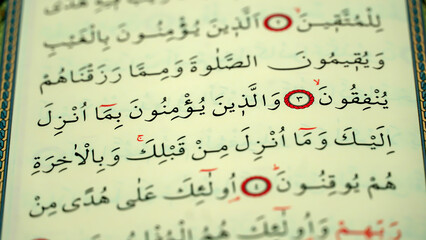 لِلْمُتَّقٖينَۙ ﴿٢﴾ اَلَّذٖينَ يُؤْمِنُونَ بِالْغَيْبِ
وَيُقٖيمُونَ الصَّلٰوةَ وَمِمَّا رَزَقْنَاهُمْ
يُنْفِقُونَۙ ﴿٣﴾ وَالَّذٖينَ يُؤْمِنُونَ بِمَٓا اُنْزِلَ
اِلَيْكَ وَمَٓا اُنْزِلَ مِنْ قَبْلِكَۚ وَبِالْاٰخِرَةِ
هُمْ يُوقِنُونَۜ ﴿٤﴾ اُو۬لٰٓئِكَ عَلٰى هُدًى مِنْ
رَبِّهِمْ وَاُو۬لٰٓئِكَ هُمُ الْمُفْلِحُونَ